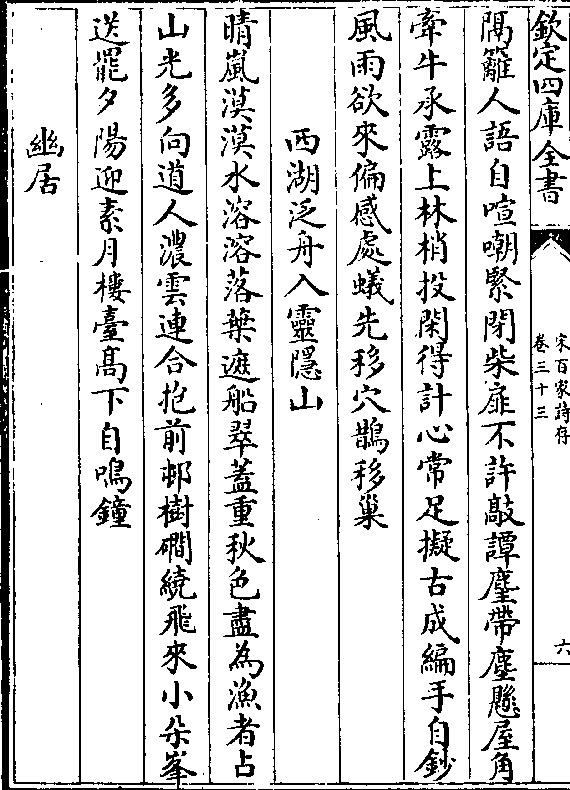 欽定四庫全書
宋百家詩存
卷三十三
六
隔籬人語自喧嘲緊閉柴扉不許敲譚麈帶塵懸屋角
牽牛承露上林梢投閑得計心常足擬古成編手自鈔
風雨欲來偏感處蟻先移穴鵲移巢
西湖泛舟入靈隱山
晴嵐漠漠水溶溶落葉遮船翠蓋重秋色盡為漁者占
山光多向道人濃雲連合抱前邨樹磵繞飛來小朶峯
送罷夕陽迎素月樓臺髙下自鳴鐘
幽居